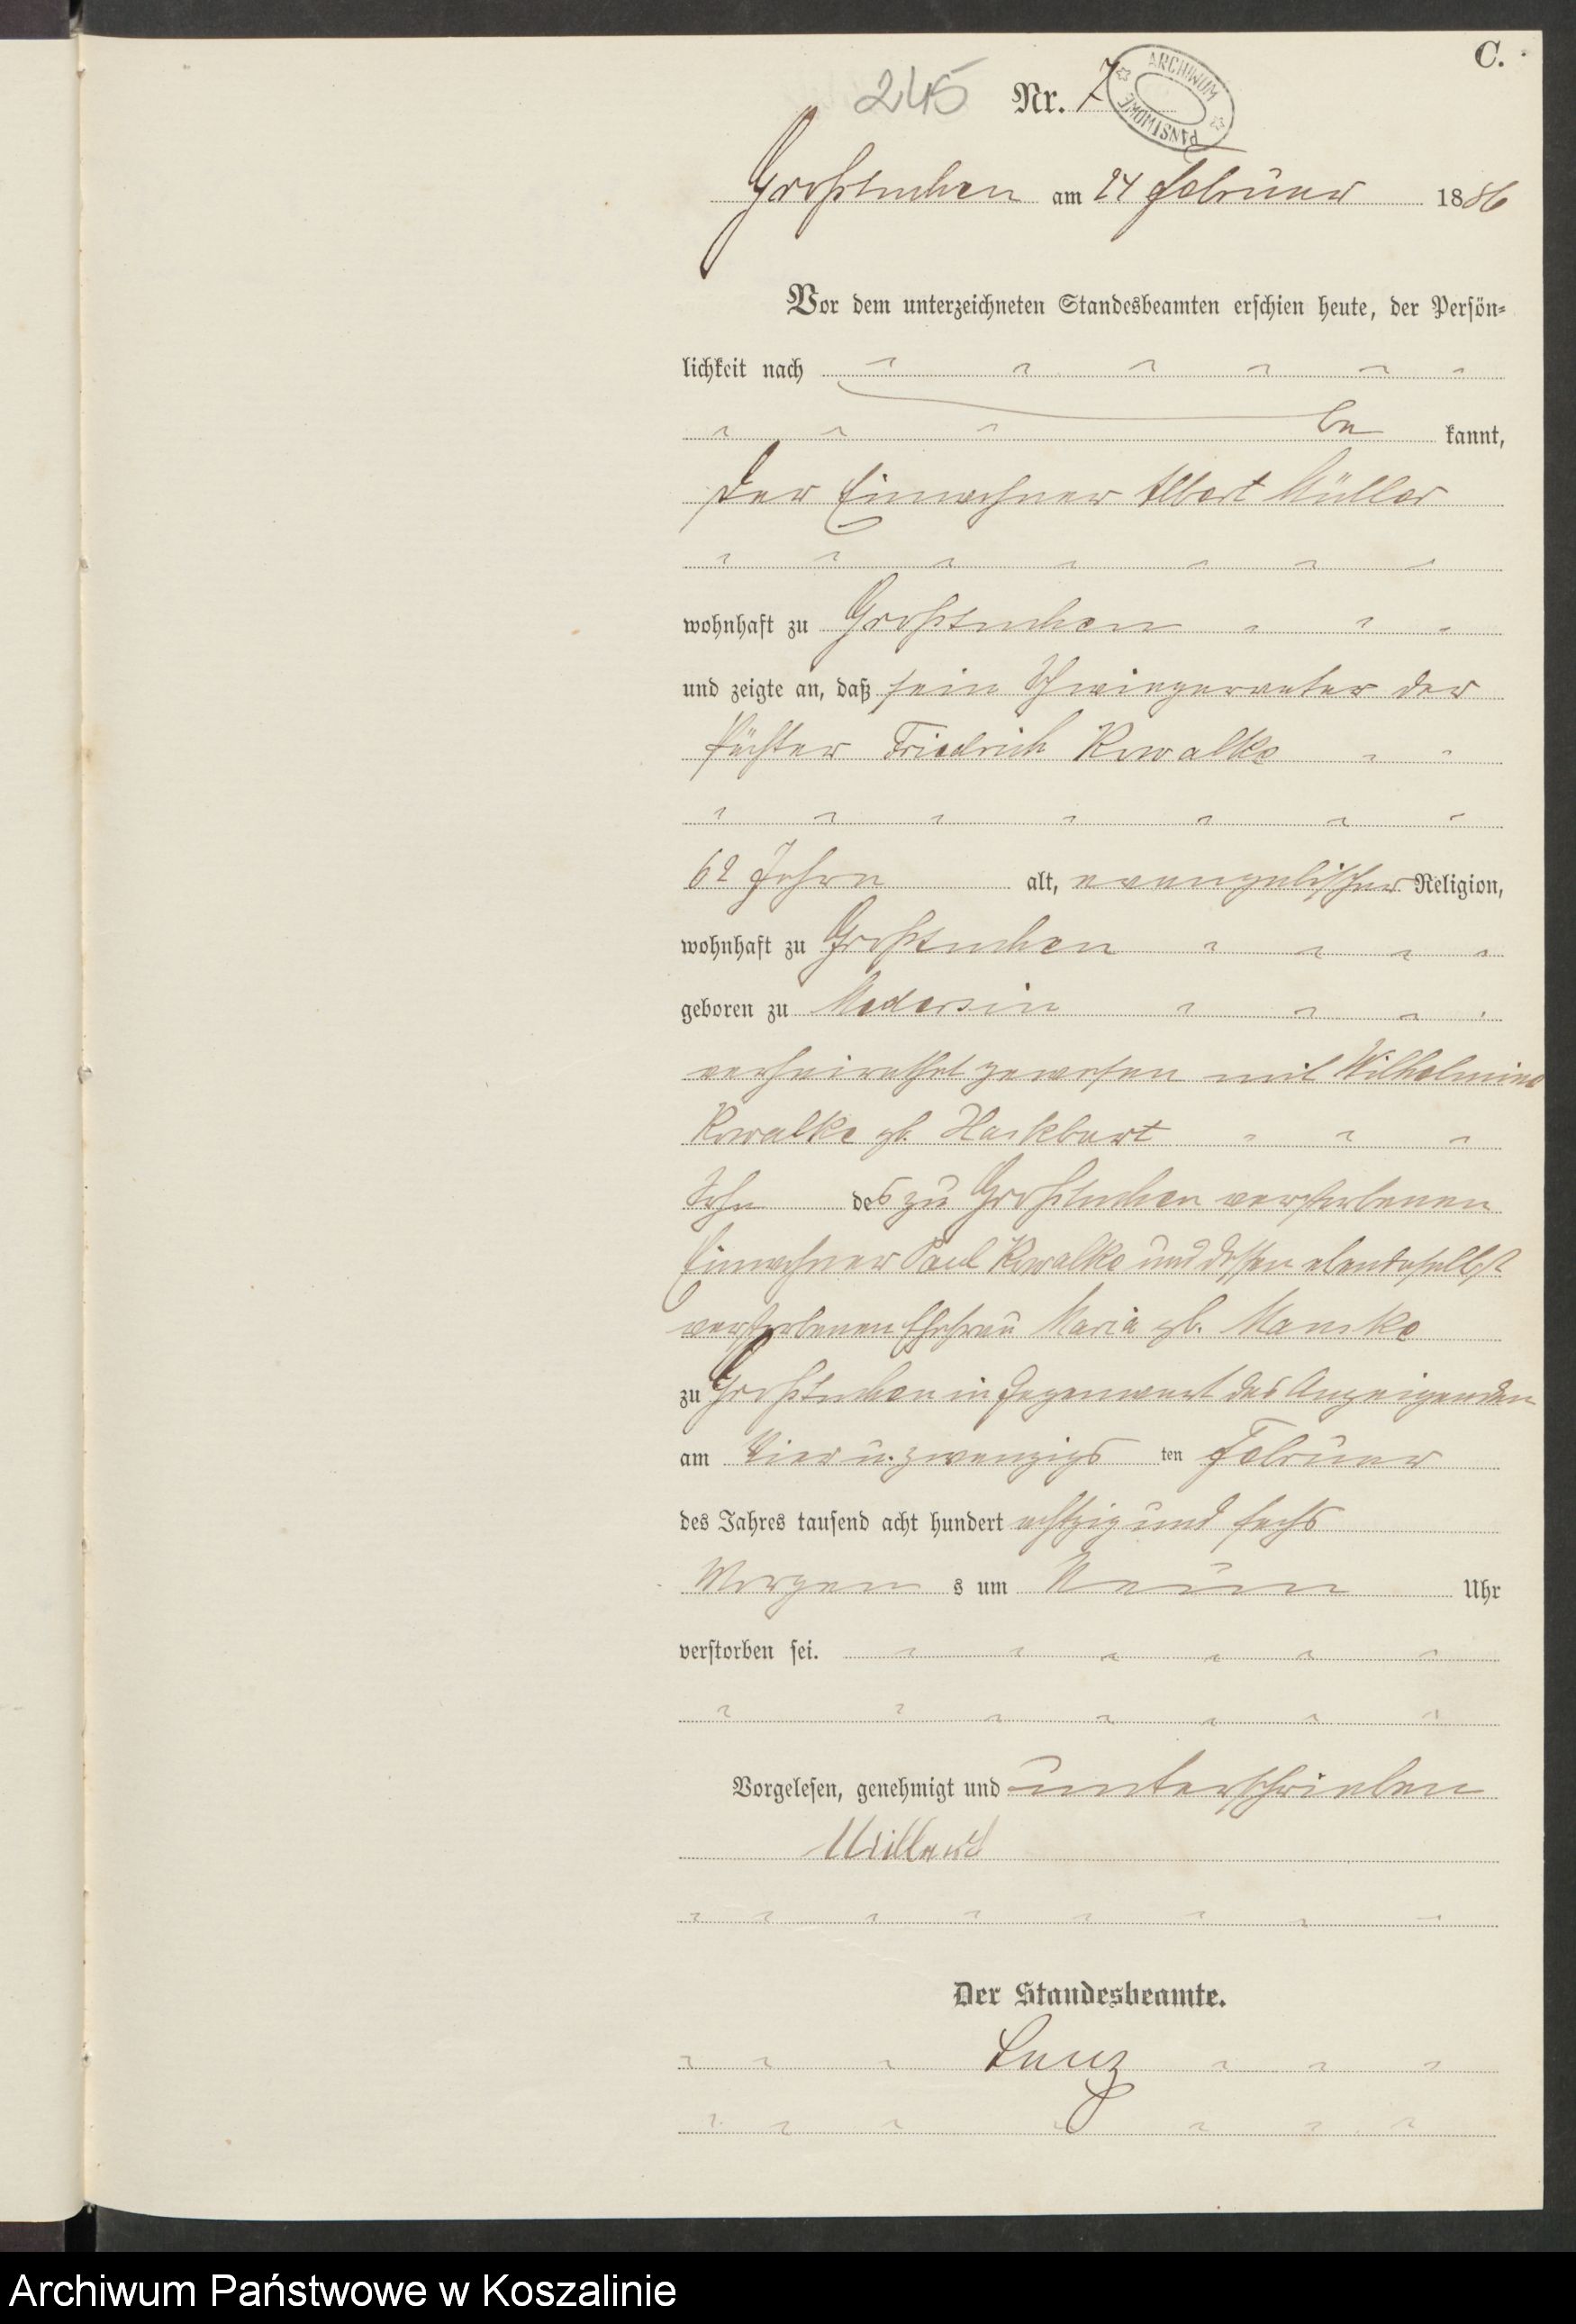 C.
245 Nr. 7
ARCHIWUM PAŃSTWOWE
Großtuchen am 24 Februar 1886
Vor dem unterzeichneten Standesbeamten erschien heute, der Persön-
lichkeit nach
be kannt,
der Einwohner Albert Müller
wohnhaft zu Großtuchen
und zeigte an, daß sein Schwiegervater der
Pächter Friedrich Kowalke
62 Jahre alt, evangelischer Religion,
wohnhaft zu Großtuchen
geboren zu Modersin
verheirathet gewesen mit Wilhelmine
Kowalke gb. Hackbart
Sohn des zu Großtuchen verstorbenen
Einwohner Paul Kowalke und dessen ebendaselbst
verstorbenen Ehefrau Maria gb. Manske
zu Großtuchen in Gegenwart des Anzeigenden
am Vier u. zwanzigs ten Februar
des Jahres tausend acht hundert achtzig und sechs
Morgen s um Neun Uhr
verstorben sei.
Vorgelesen, genehmigt und unterschrieben
Der Standesbeamte.
Archiwum Państwowe w Koszalinie